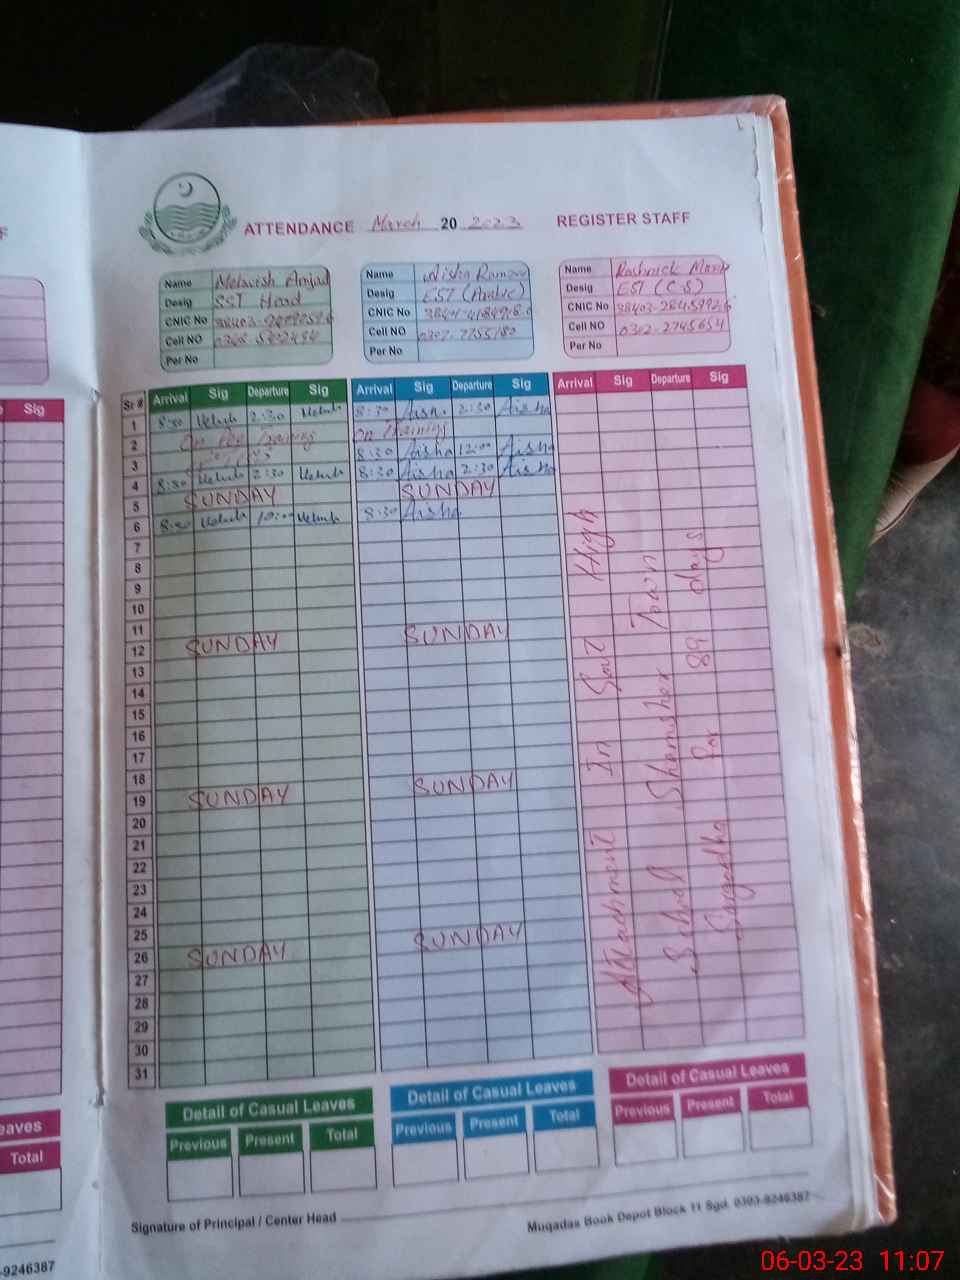 F
ATTENDANCE March 20 2023 REGISTER STAFF
Name Mehwish Amjad
Desig SST Head
CNIC No
Cell NO
Per No
Name Aisha
Desig EST (Arabic)
CNIC No
Cell NO 0307-7755180
Per No
Name
Desig EST (C-S)
CNIC No
Cell NO 0302-2745654
Per No
Sig
Sr # Arrival Sig Departure Sig Arrival Sig Departure Sig Arrival Sig Departure Sig
1 8:30 Mehwish 2:30 Mehwish 8:30 Aisha 2:30 Aisha
2 On Training On Training
3 8:30 Aisha 12:00 Aisha
4 8:30 Mehwish 2:30 Mehwish 8:30 Aisha 2:30 Aisha
5 SUNDAY SUNDAY
6 8:30 Mehwish 10:00 Mehwish 8:30 Aisha
7
8
9
10
11
12 SUNDAY SUNDAY
13
14
15
16
17
18
19 SUNDAY SUNDAY
20
21
22
23
24
25
26 SUNDAY SUNDAY
27
28
29
30
31
Attachment In Govt High
School Shamsher Town
Sargodha for 89 days
eaves
Total
Detail of Casual Leaves
Previous Present Total
Detail of Casual Leaves
Previous Present Total
Detail of Casual Leaves
Previous Present Total
Signature of Principal / Center Head
Muqadas Book Depot Block 11 Sgd. 0303-9246387
-9246387
06-03-23 11:07